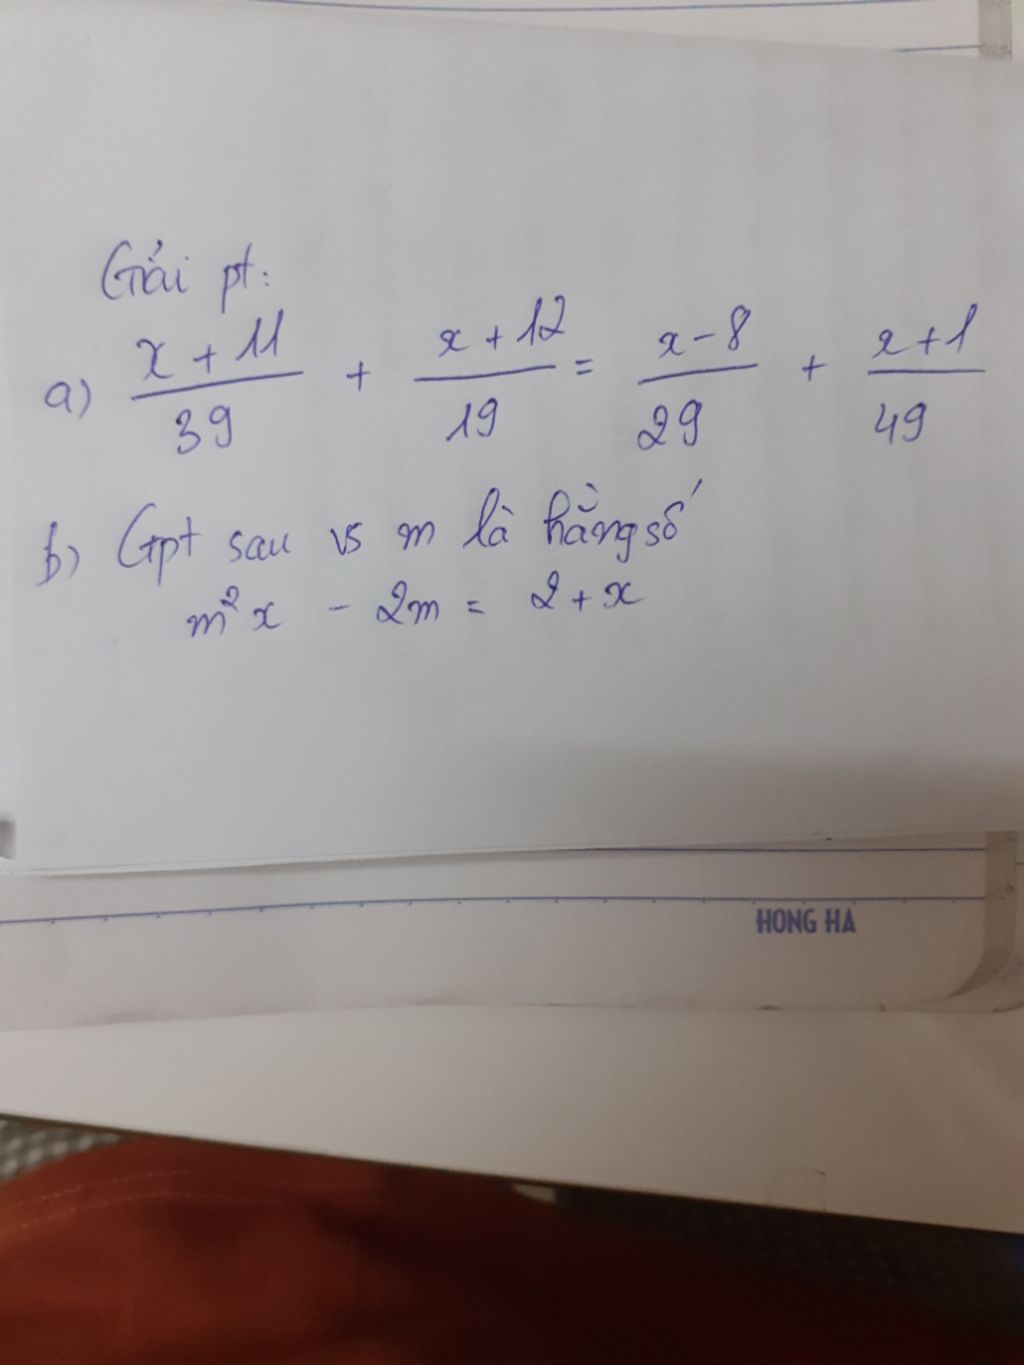 Giải pt:
a) \frac{x+11}{39} + \frac{x+12}{19} = \frac{x-8}{29} + \frac{x+1}{49}
b) Gpt sau vs m là hằng số
m²x - 2m = 2 + x
HONG HA